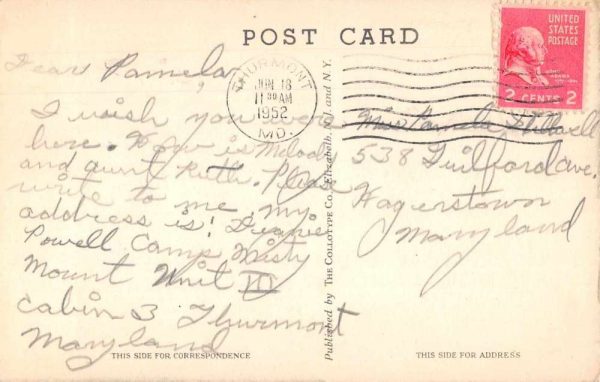 POST CARD
Dear Pamela,
I wish you were
here. How is Melody
and aunt Ruth. Please
write to me, my
address is: Duanie
Powell Camp Misty
Mount Unit III
cabin 3 Thurmont
Maryland
THIS SIDE FOR CORRESPONDENCE
Published by THE COLLOTYPE CO., Elizabeth, N.J. and N.Y.
THURMONT
JUN 18
11 30 AM
1952
MD.
UNITED
STATES
POSTAGE
2 CENTS 2
Miss Pamela Stilwell
538 Guilford Ave.
Hagerstown
Maryland
THIS SIDE FOR ADDRESS